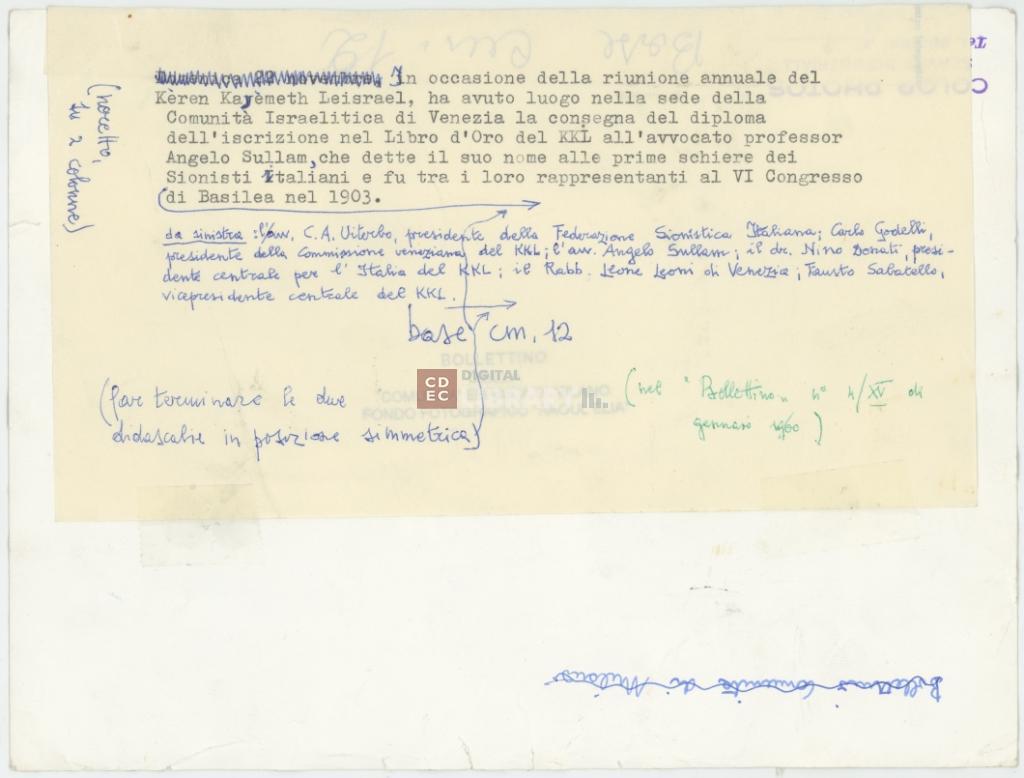 Base cm. 12
Domenica 22 novembre, In occasione della riunione annuale del
Kèren Kayèmeth Leisrael, ha avuto luogo nella sede della
Comunità Israelitica di Venezia la consegna del diploma
dell'iscrizione nel Libro d'Oro del KKL all'avvocato professor
Angelo Sullam, che dette il suo nome alle prime schiere dei
Sionisti Italiani e fu tra i loro rappresentanti al VI Congresso
di Basilea nel 1903.
(neretto,
su 2 colonne)
da sinistra: l'avv. C.A. Viterbo, presidente della Federazione Sionistica Italiana; Carlo Godelli,
presidente della Commissione veneziana del KKL; l'avv. Angelo Sullam; il dr. Nino Donati, presi-
dente centrale per l'Italia del KKL; il Rabb. Leone Leoni di Venezia; Fausto Sabatello,
vicepresidente centrale del KKL.
base cm. 12
BOLLETTINO
CD
EC
DIGITAL
FONDO FOTOGRAFICO
(far terminare le due
didascalie in posizione simmetrica)
(nel "Bollettino" n° 4/XV di
gennaio 1960)
Bollettino Comunità di Milano